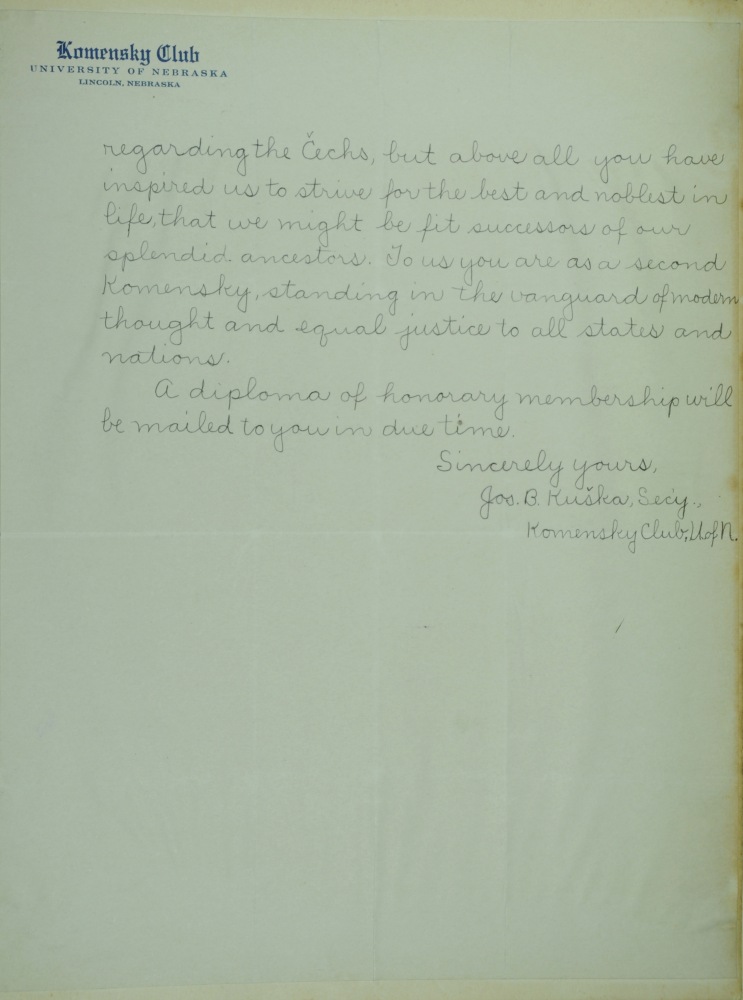 Komensky Club
UNIVERSITY OF NEBRASKA
LINCOLN, NEBRASKA
regarding the Čechs, but above all you have
inspired us to strive for the best and noblest in
life, that we might be fit successors of our
splendid ancestors. To us you are as a second
Komensky, standing in the vanguard of modern
thought and equal justice to all states and
nations.
A diploma of honorary membership will
be mailed to you in due time.
Sincerely yours,
Jos. B. Kuška, Secy.,
Komensky Club, U of N.